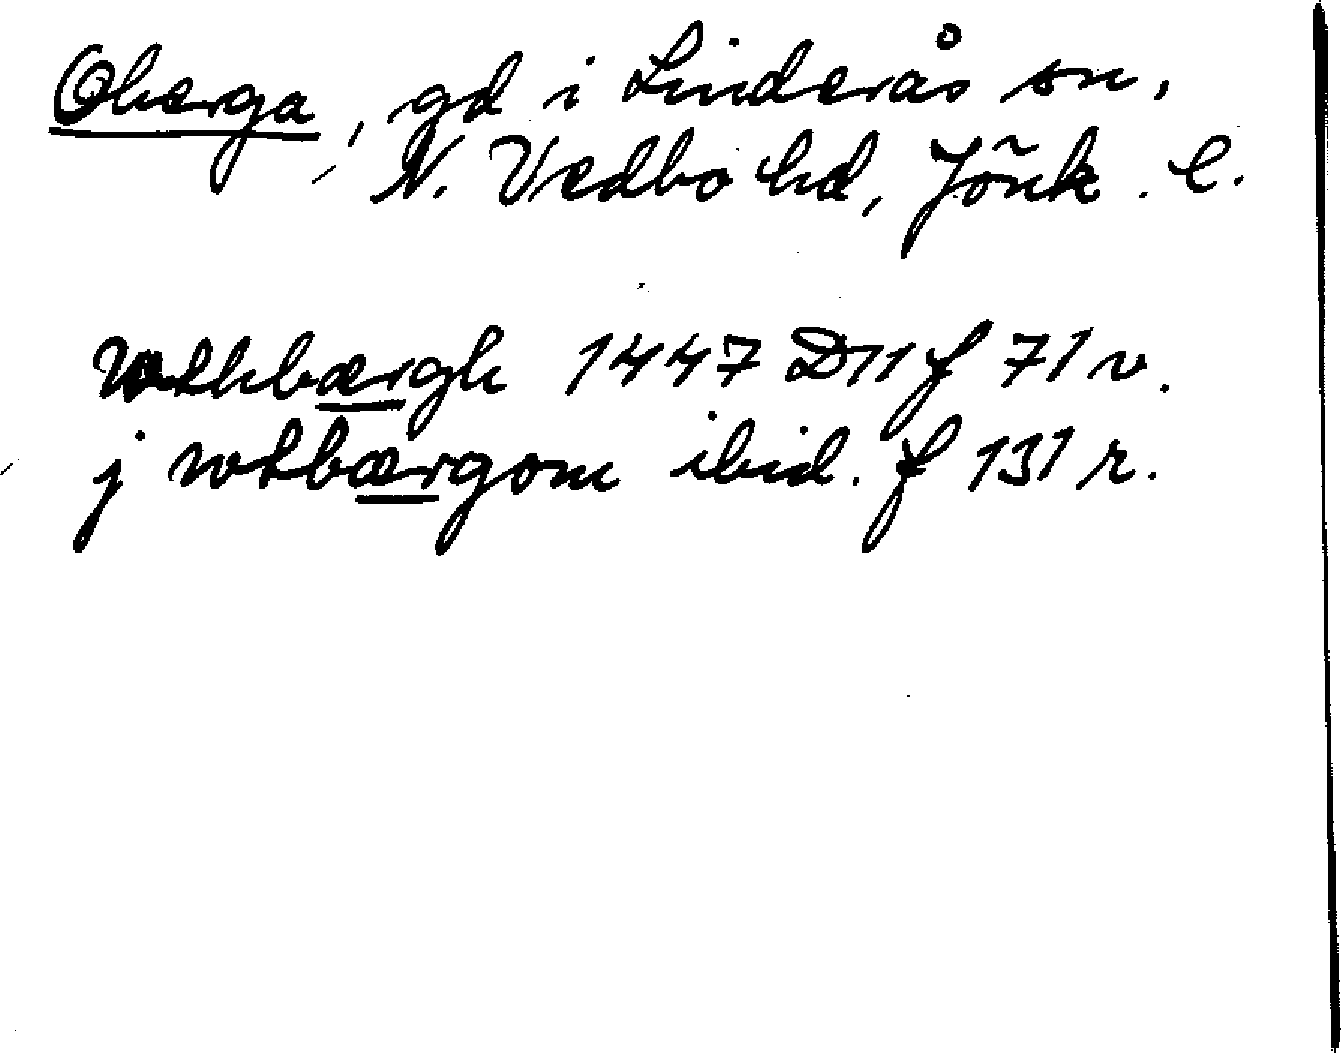 Oberga, gd i Linderås sn,
N. Vedbo hd, Jönk. l.
Wthbærgh 1447 D11 f 71 v.
j wtbærgom ibid. f 131 r.